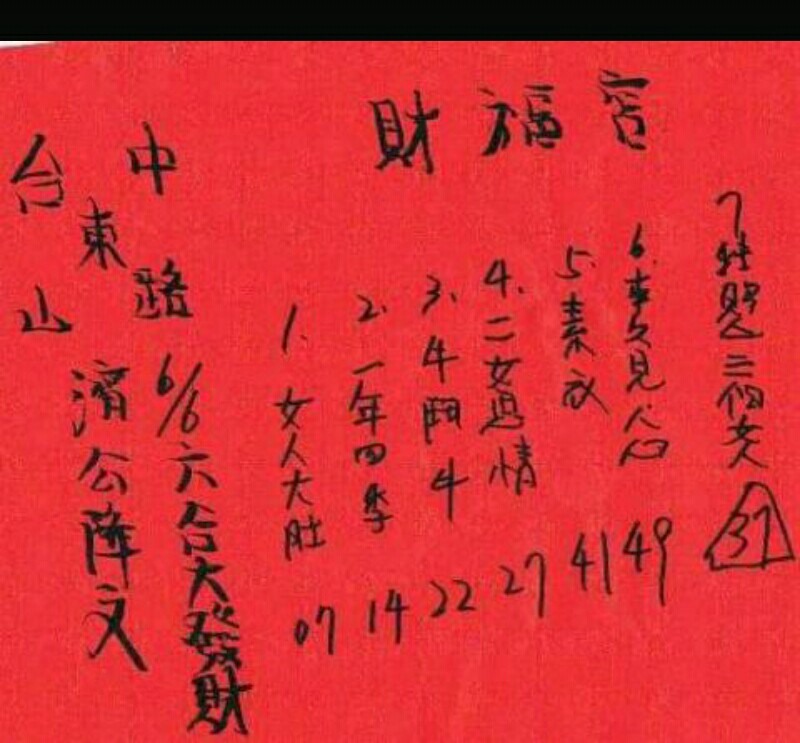 財福宮
台中
東路
山
濟公降文
6/6六合大發財
1. 女人大肚 07
2. 一年四季 14
3. 牛鬥牛 22
4. 二女思情 27
5. 素衣 41
6. 久見人心 49
7 二個女人 37